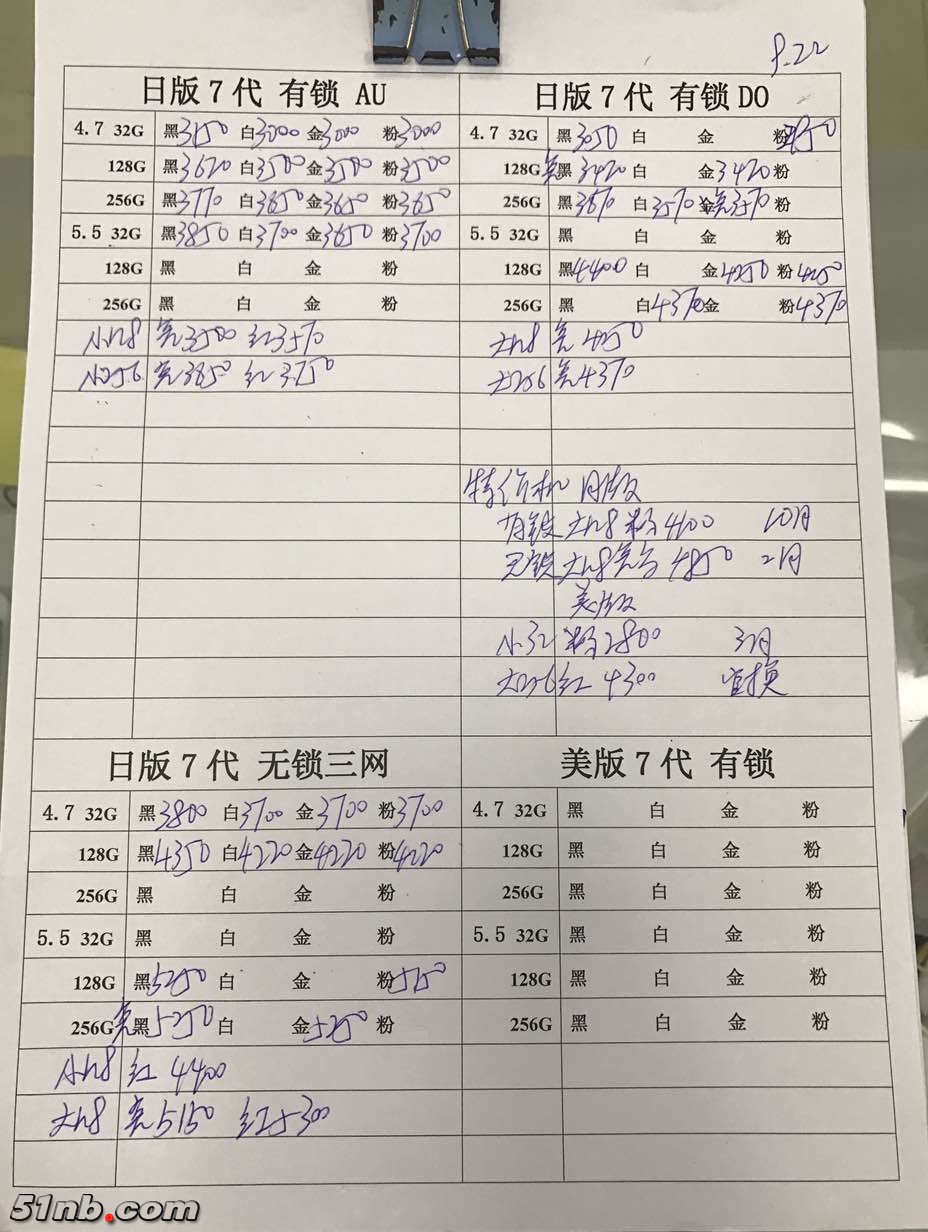 8.22
日版7代 有锁 AU
4.7 32G 黑3150 白3000 金3000 粉3000
128G 黑3620 白3500 金3500 粉3500
256G 黑3770 白3650 金3650 粉3650
5.5 32G 黑3850 白3700 金3650 粉3700
128G 黑 白 金 粉
256G 黑 白 金 粉
小128 亮3500 红3570
小256 亮3650 红3750
日版7代 有锁DO
4.7 32G 黑3050 白 金 粉2950
128G 亮黑3420 白 金3420 粉
256G 黑3670 白3570 金亮3570 粉
5.5 32G 黑 白 金 粉
128G 黑4400 白 金4250 粉4250
256G 黑 白4370 金 粉4370
大128 亮4250
大256 亮4370
特价机 日版
有锁 大128 粉4100 10月
无锁 大128 亮 4850 2月
美版
小32 粉2800 3月
大256 红 4300 官换
日版7代 无锁三网
4.7 32G 黑3800 白3700 金3700 粉3700
128G 黑4350 白4220 金4220 粉4220
256G 黑 白 金 粉
5.5 32G 黑 白 金 粉
128G 黑5250 白 金 粉5150
256G 亮黑5250 白 金5250 粉
小128 红 4400
大128 亮5150 红5300
美版7代 有锁
4.7 32G 黑 白 金 粉
128G 黑 白 金 粉
256G 黑 白 金 粉
5.5 32G 黑 白 金 粉
128G 黑 白 金 粉
256G 黑 白 金 粉
51nb.com